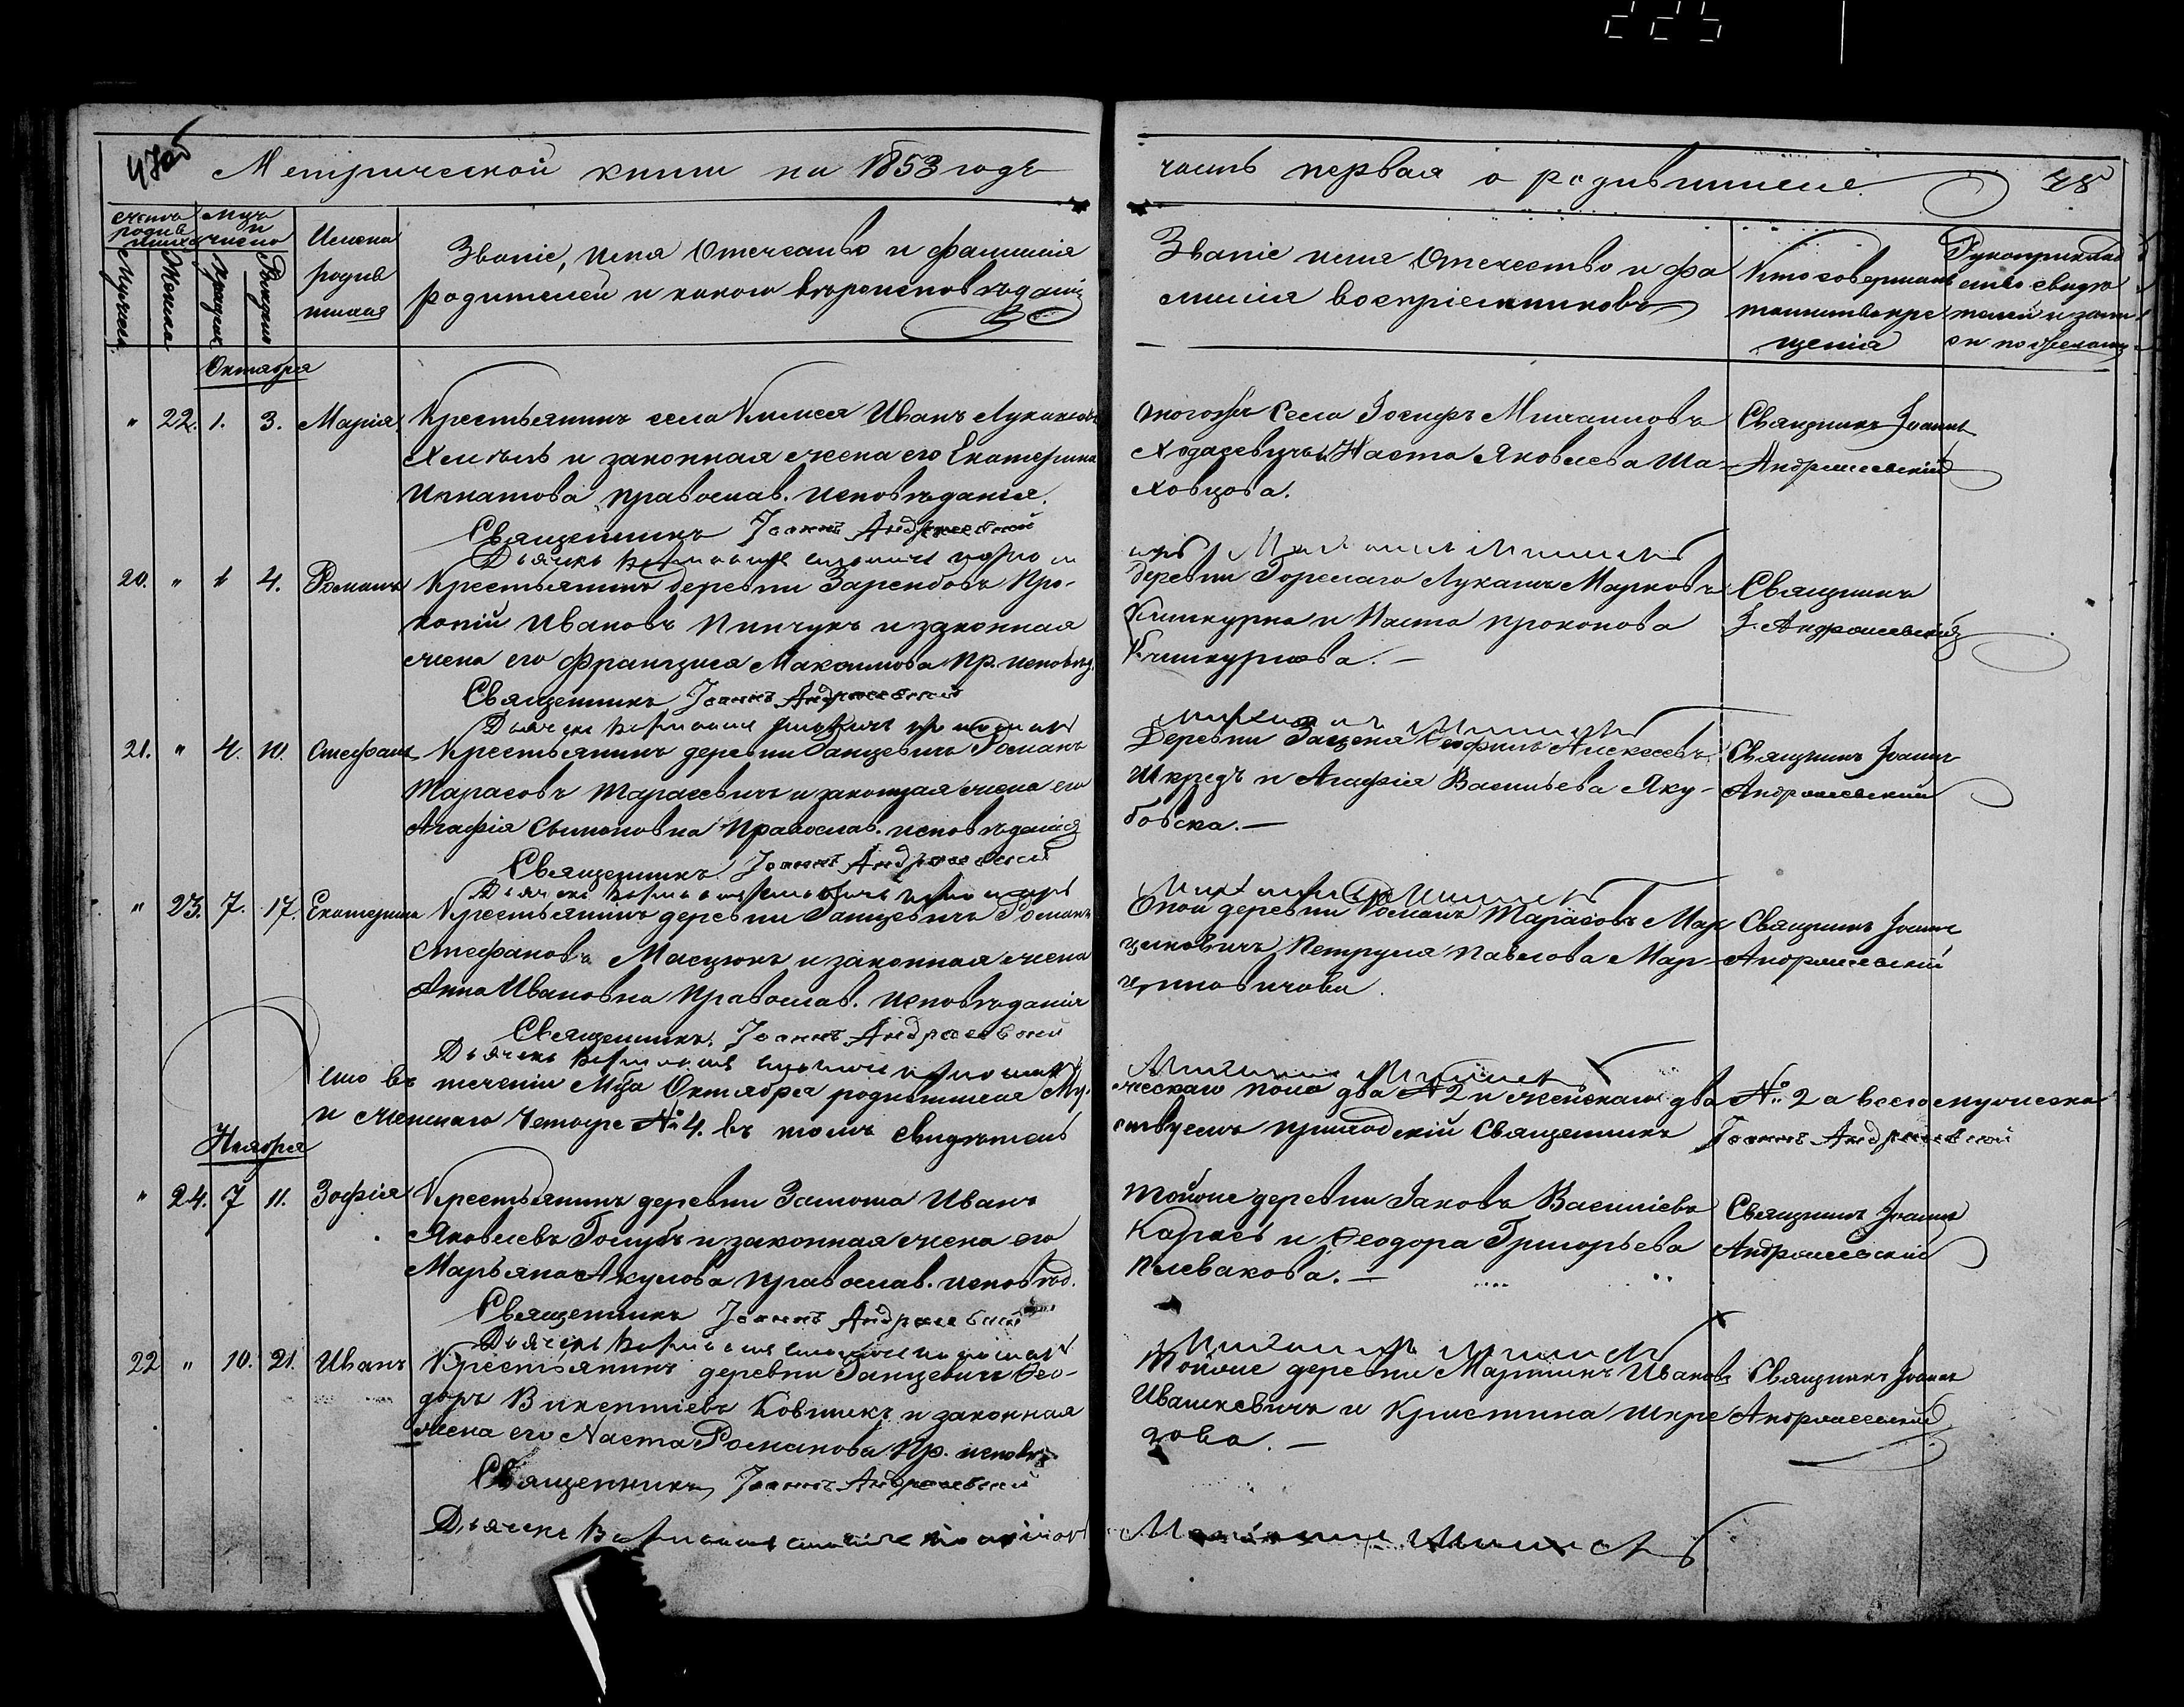 225
47об
Метрической книги на 1853 годъ
часть первая о родившихся
48
счетъ родив шихся
Мужеска
Женска
мцъ и число
Имена родив шихся
Званіе, имя Отчество и фамилія
родителей и какого вѣроисповѣданія
Званіе имя Отчество и фа
милія воспріемниковъ
Кто совершалъ
таинство кре
щенія
Рукоприклад
ство свидѣ
телей и запи
си по желанію
Октября
" 22. 1. 3. Марія
Крестьянинъ села Иванъ
и законная жена его Екатерина
Игнатова православ. исповѣданія.
Священникъ Іоаннъ Андрошевскій
Дьячекъ
Оногожъ села Іосифъ Михаиловъ
Ходасевичъ и Наста Яковлева Ша-
ховцова.
Священникъ Іоаннъ
Андрошевскій
20. " 1 4. Романъ
Крестьянинъ деревни Про-
копій Ивановъ Пинчукъ и законная
жена его Францися Максимова пр. исповѣд.
Священникъ Іоаннъ Андрошевскій
Дьячекъ
деревни Лукашъ Марковъ
и Наста Прокопова
Священникъ
І. Андрошевскій
21. " 4. 10. Стефанъ
Крестьянинъ деревни Ганцевичъ Романъ
Тарасовъ Тарасевичъ и законная жена его
Агафія Симоновна православ. исповѣданія
Священникъ Іоаннъ Андрошевскій
Дьячекъ
Деревни Алексеевъ
Шкредъ и Агафія Васильева Яку-
бовска.—
Священникъ Іоаннъ
Андрошевскій
" 23. 7. 17. Екатерина
Крестьянинъ деревни Ганцевичъ Романъ
Стефановъ Масцюкъ и законная жена
Анна Ивановна православ. исповѣданія
Священникъ Іоаннъ Андрошевскій
Дьячекъ
Оной деревни Романъ Тарасовъ Мар
циновичъ Петруля Павлова Мар-
циновичова.
Священникъ Іоаннъ
Андрошевскій
что въ теченіи Мца Октября родившихся му-
ческаго пола два №2 и женскаго два №2 а всего мужеска
и женскаго четыре №4. въ томъ свидѣтель
ствуетъ приходскій Священникъ Іоаннъ Андрошевскій
Ноября
" 24. 7 11. Зофія
Крестьянинъ деревни Замоша Иванъ
Яковлевъ Голубъ и законная жена его
Марьяна Акулова православ. исповѣд.
Священникъ Іоаннъ Андрошевскій
Дьячекъ
Тойже деревни Іаковъ Василіевъ
Карась и Ѳеодора Григорьева
Плевакова.—
Священникъ Іоаннъ
Андрошевскій
22 " 10. 21. Иванъ
Крестьянинъ деревни Ганцевичъ Ѳео-
доръ Викентіевъ Ковшикъ и законная
жена его Наста Романова пр. исповѣ
Священникъ Іоаннъ Андрошевскій
Дьячекъ
Тойже деревни Мартинъ Ивановъ
Ивашкевичъ и Кристина Шкре
дова.—
Священникъ Іоаннъ
Андрошевскій